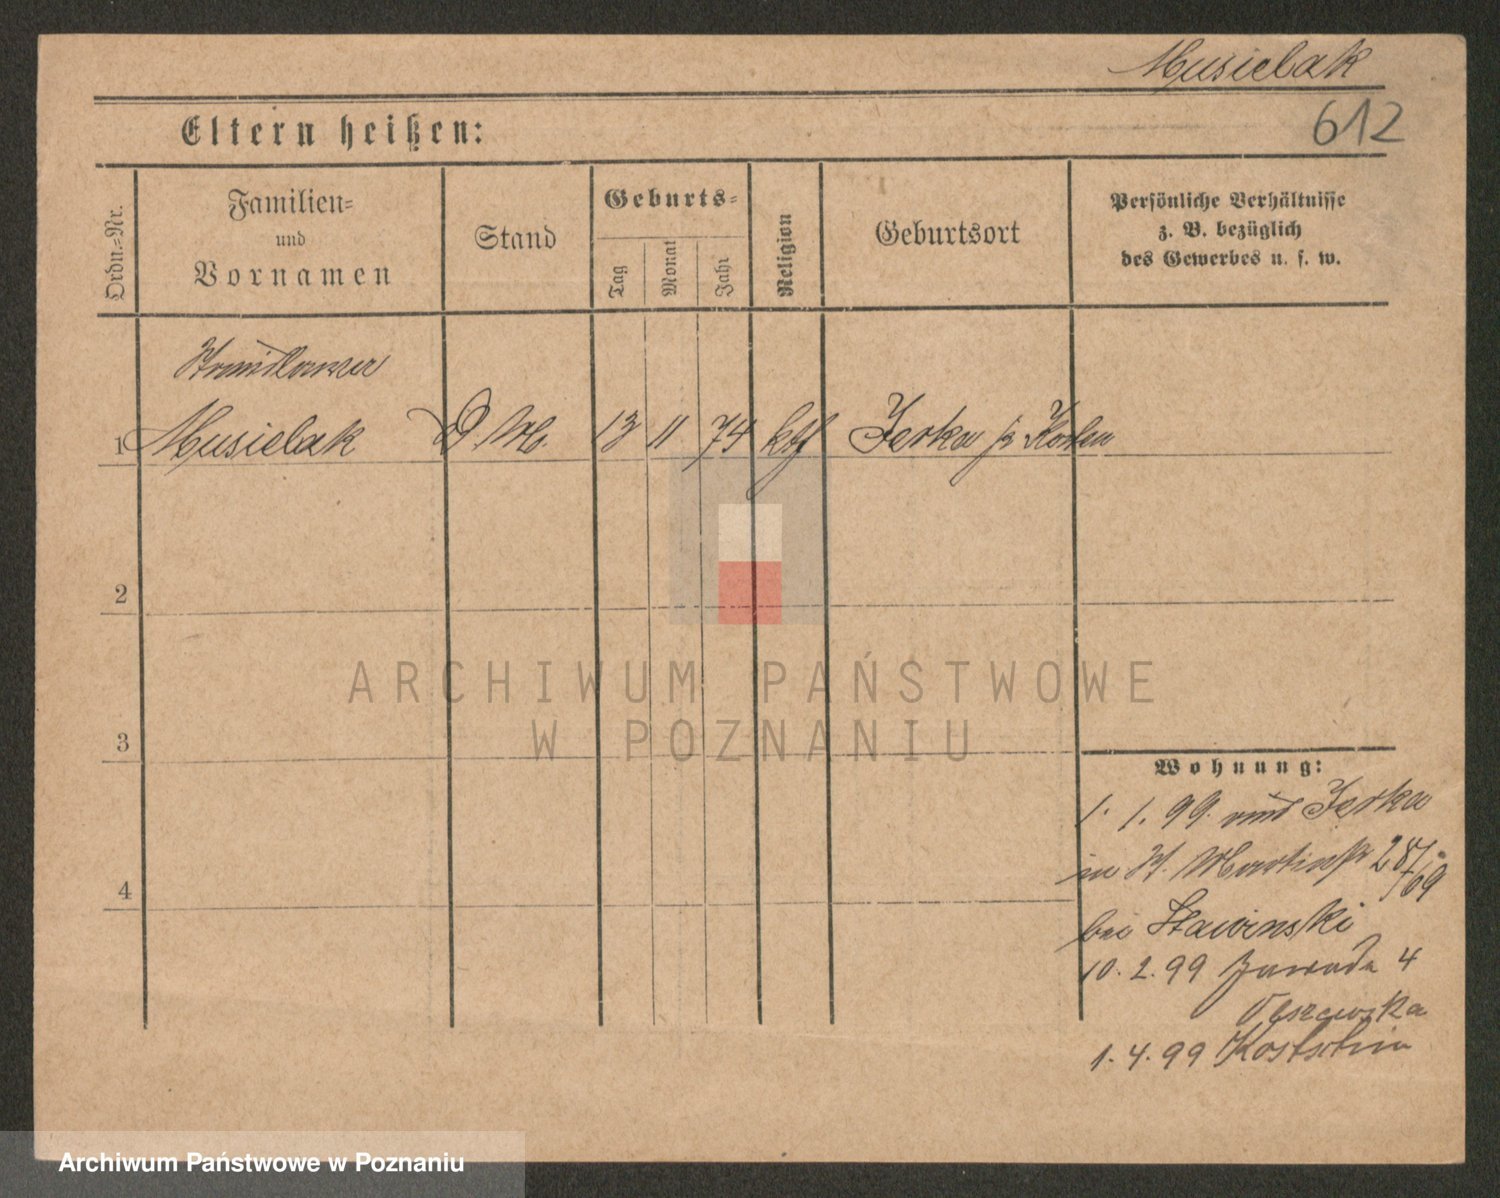 Musielak
612
Eltern heißen:
Ordn.=Nr.
Familien=
und
Vornamen
Stand
Geburts=
Tag
Monat
Jahr
Religion
Geburtsort
Persönliche Verhältnisse
z. B. bezüglich
des Gewerbes u. s. w.
1 Musielak D M. 13 11 74 kth Jerka
2
3
4
ARCHIWUM PAŃSTWOWE
W POZNANIU
Wohnung:
1. 1. 99. Jerka
in St. Martinstr 28/
bei Stawinski
10. 2. 99 Zawade 4
1. 4. 99
Archiwum Państwowe w Poznaniu